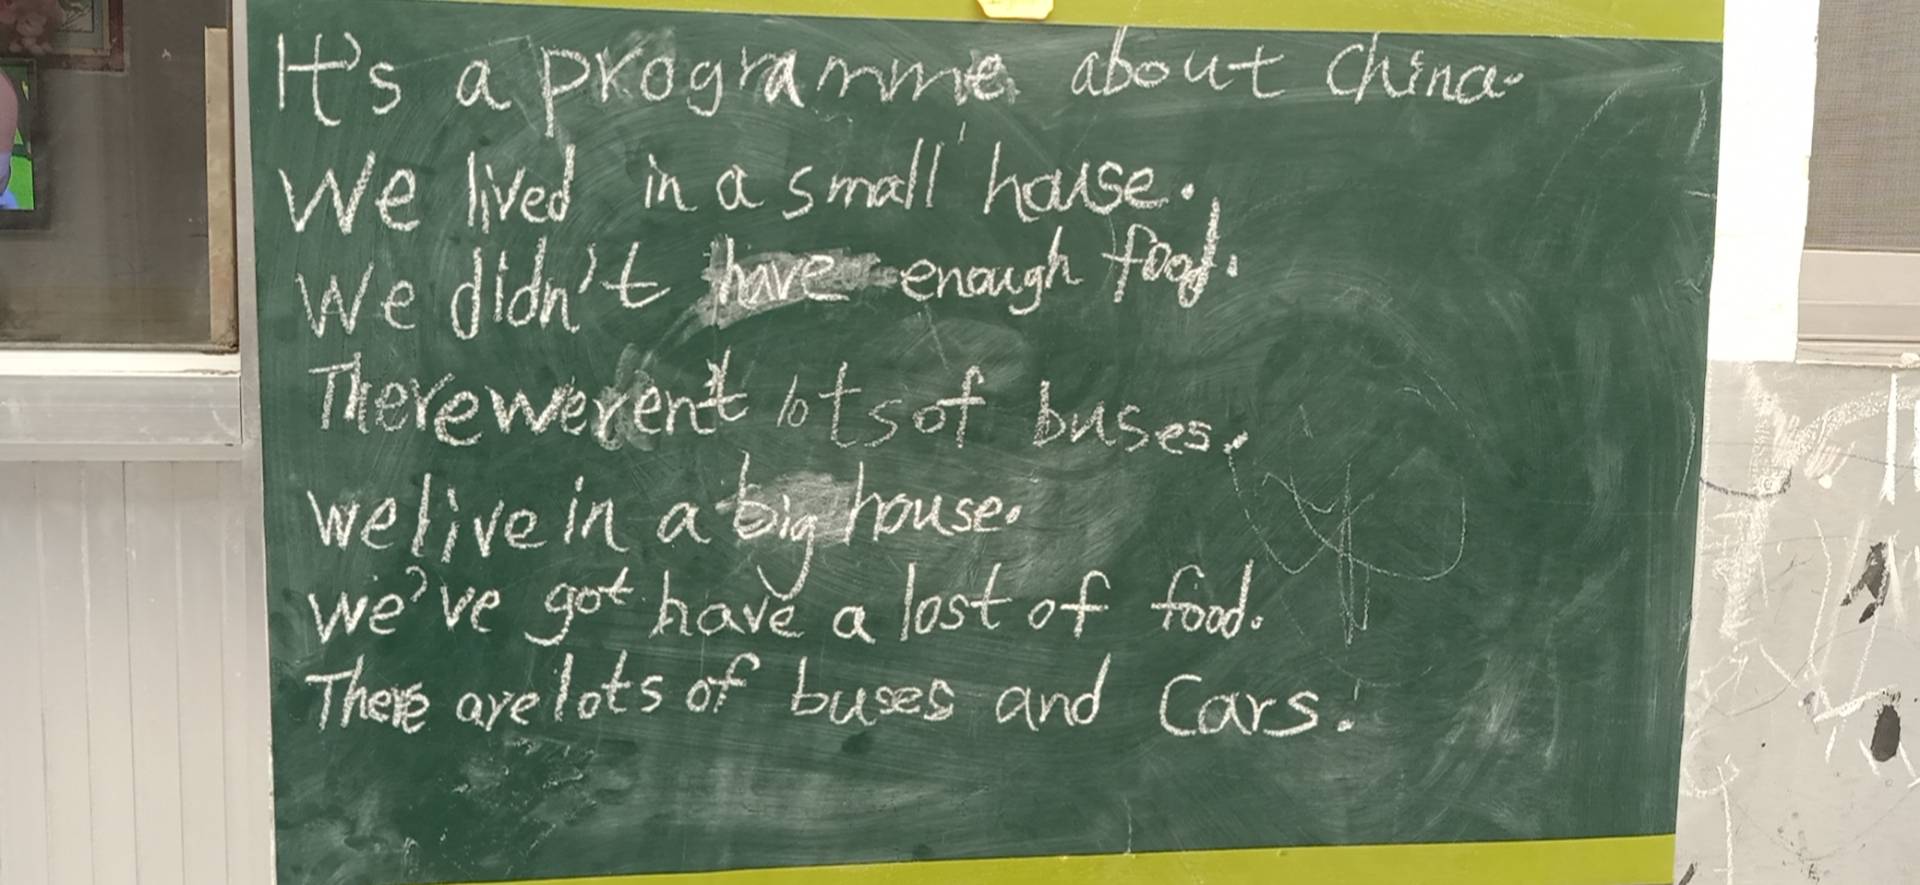 It's a programme about China.
We lived in a small house.
We didn't have enough food.
There weren't lots of buses.
we live in a big house.
we've got have a lost of food.
There are lots of buses and Cars.